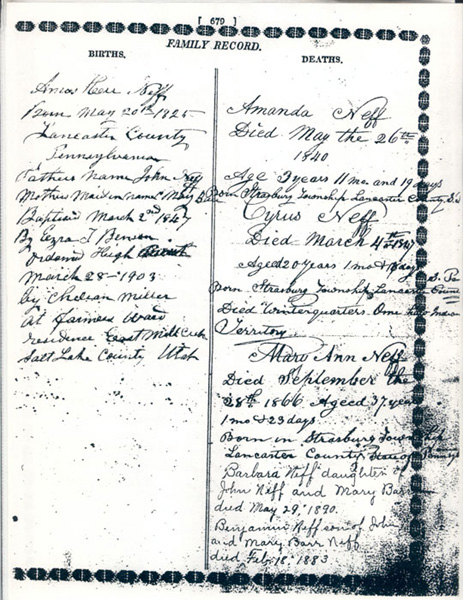 [ 679 ]
FAMILY RECORD.
BIRTHS.
Amos Herr Neff
Born May 20th 1825
Lancaster County
Pennsylvania
Fathers Name John Neff
Mothers Maiden name Mary Barr
Baptised March 2nd 1847
By Ezra T Benson
Hugh
March 28 - 1903
by
At Farmers Ward
residence East Mill Creek
Salt Lake County Utah
DEATHS.
Amanda Neff
Died May the 26th
1840
Age 9 years 11 mo. and 19 days
Born Strasburg Township Lancaster County
Cyrus Neff
Died March 4th 1847
Aged 20 years 1 mo &
Born Strasburg Township Lancaster
Died Winterquarters Indian
Territory
Mary Ann Neff
Died September the
28th 1866 Aged 37 year
1 mo & 23 days
Born in Strasburg Township
Lancaster County State of
Barbara Neff daughter of
John Neff and Mary Barr
died May 29, 1890.
Benjamin Neff son of John
and Mary Barr Neff
died Feb. 18, 1883